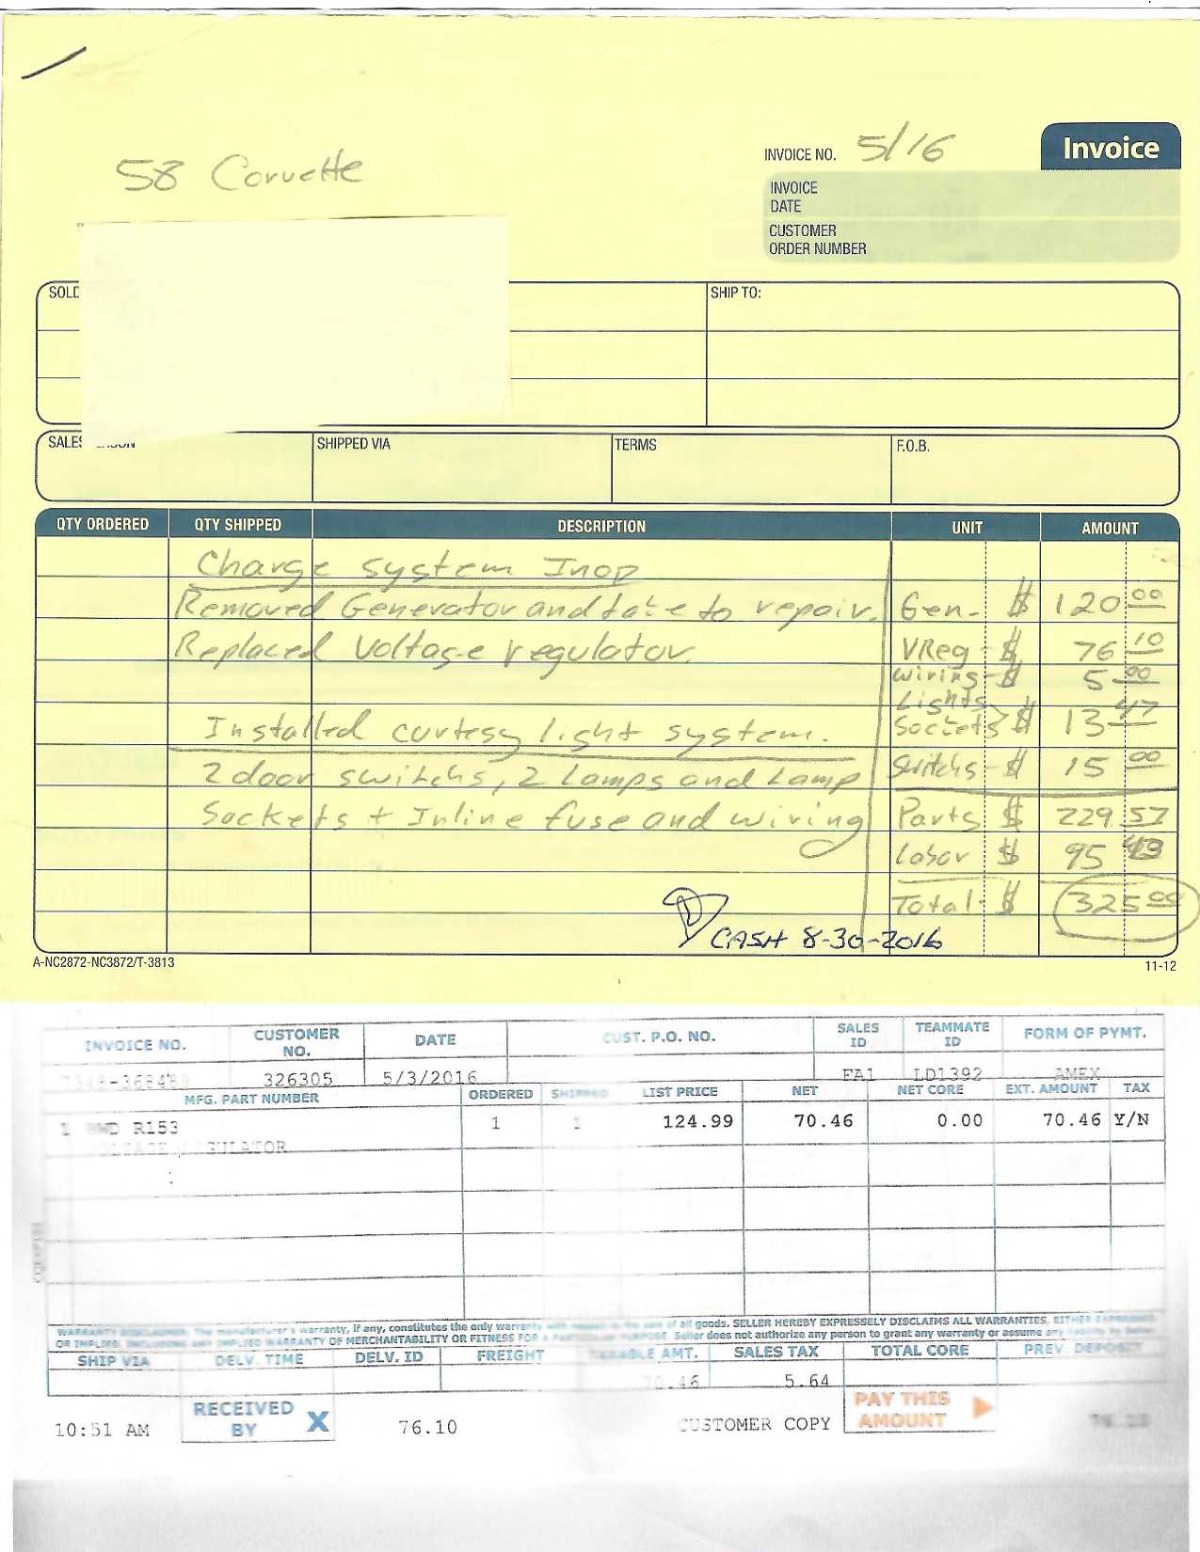 58 Corvette
INVOICE NO. 5/16
Invoice
INVOICE
DATE
CUSTOMER
ORDER NUMBER
SOLD
SHIP TO:
SALES
SHIPPED VIA
TERMS
F.O.B.
QTY ORDERED QTY SHIPPED DESCRIPTION UNIT AMOUNT
Charge system Inop
Removed Generator and take to repair. Gen- $ 120 00
Replaced Voltage regulator. VReg - $ 76 10
wiring - $ 5 00
Lights
Installed curtesy light system. Sockets > $ 13 47
2 door switchs, 2 Lamps and Lamp Switchs - $ 15 00
Sockets + Inline fuse and wiring Parts $ 229.57
Labor $ 95 43
Total- $ 325 00
CASH 8-30-2016
A-NC2872-NC3872/T-3813
11-12
INVOICE NO. CUSTOMER NO. DATE CUST. P.O. NO. SALES ID TEAMMATE ID FORM OF PYMT.
326305 5/3/2016 FA1 LD1392 AMEX
MFG. PART NUMBER ORDERED SHIPPED LIST PRICE NET NET CORE EXT. AMOUNT TAX
1 R153 1 1 124.99 70.46 0.00 70.46 Y/N
warranty, if any, constitutes the only goods. SELLER HEREBY EXPRESSELY DISCLAIMS ALL WARRANTIES, EITHER
OF MERCHANTABILITY OR FITNESS FOR A PARTICULAR PURPOSE. Seller does not authorize any person to grant any warranty or assume
SHIP VIA DELV. TIME DELV. ID FREIGHT AMT. SALES TAX TOTAL CORE PREV. DEPOSIT
5.64
10:51 AM RECEIVED BY X 76.10 CUSTOMER COPY PAY THIS AMOUNT 76.10